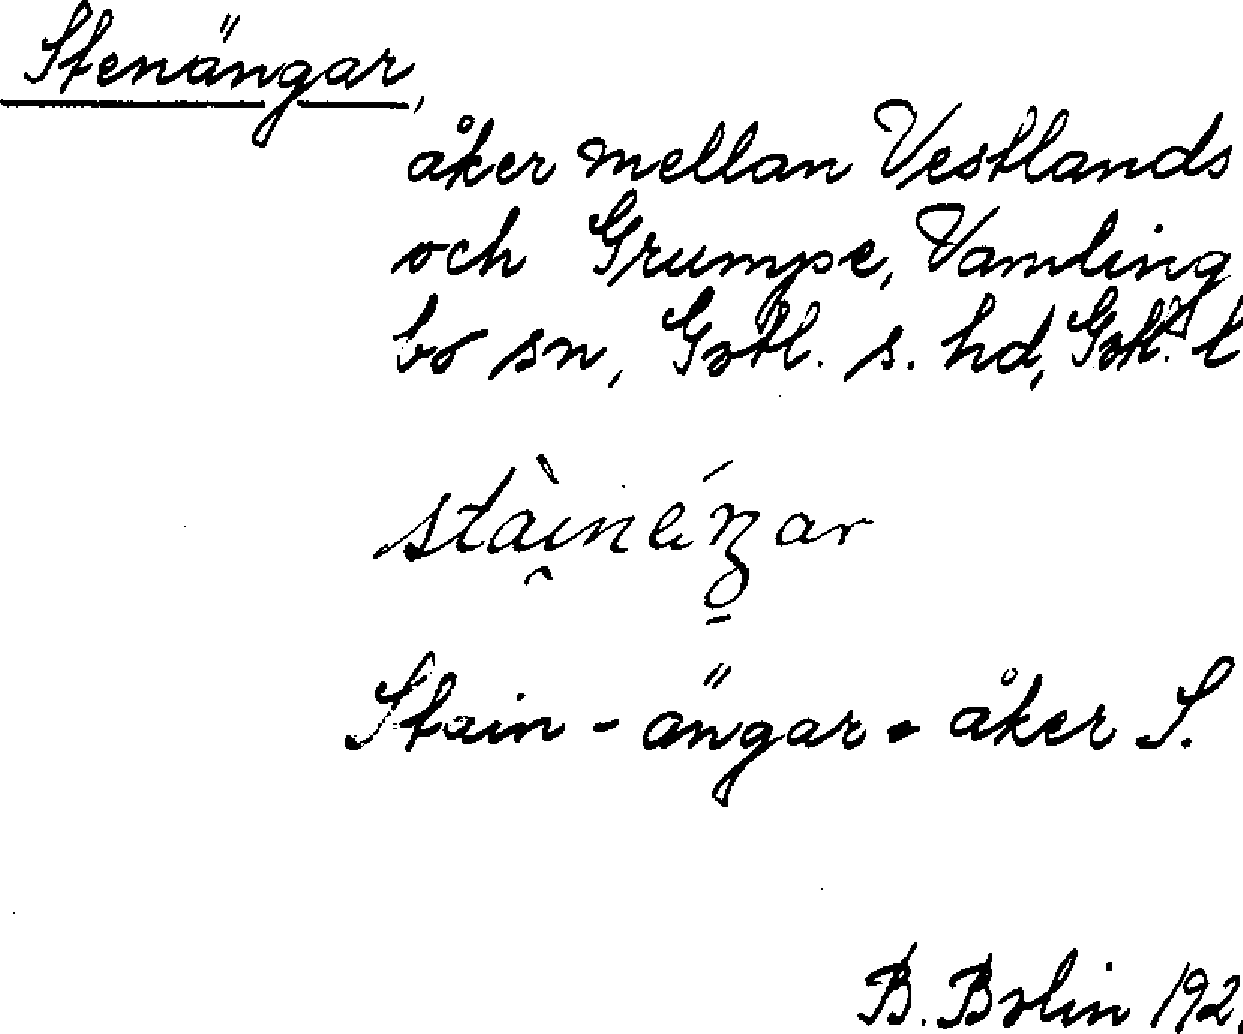 Stenängar,
åker mellan Vestlands
och Grumpe, Vamling
bo sn, Gotl. s. hd, Gotl. l
Stain - ängar - åker S.
B. Bolin 192